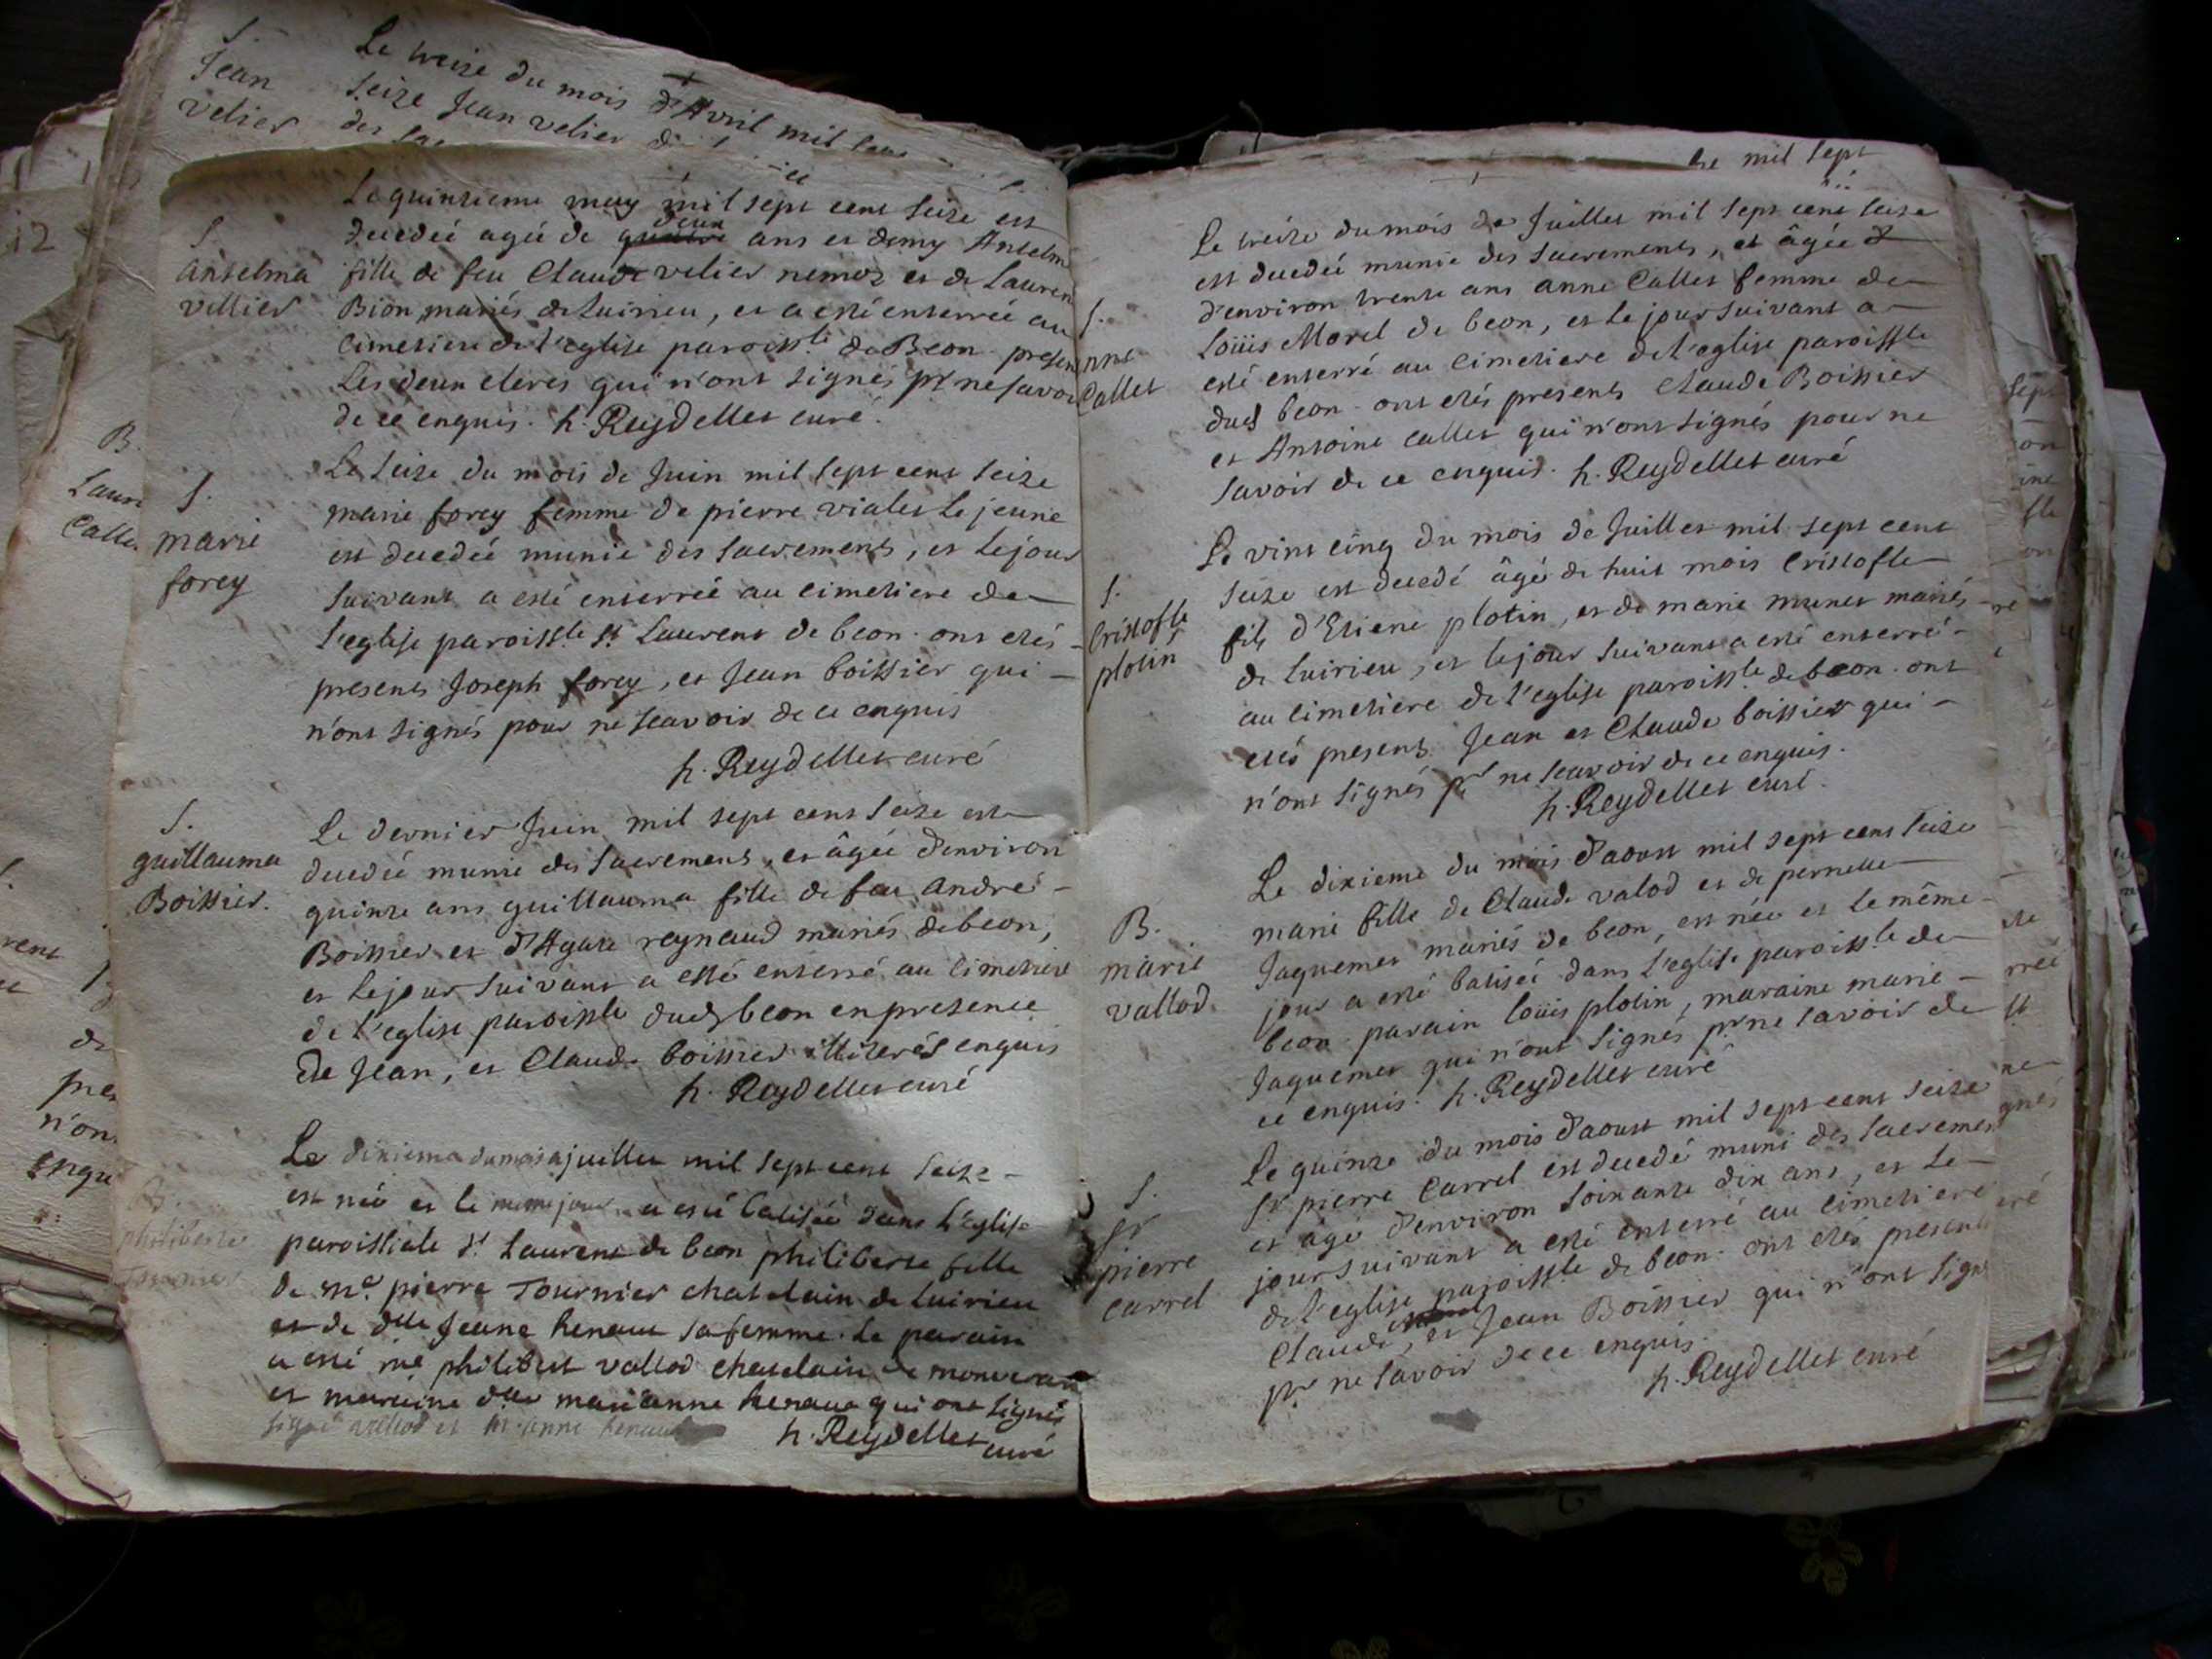 S.
Jean
Velier
Le treize du mois d'Avril mil
seize Jean velier
des
Le quinzieme may mil sept cent seize est
decedeé ageé de quatre deux ans et demy Anselm
S
anselma
villier
fille de feu Claude velier nemoz et de Lauren
Bion, mariés de luirieu, et a esté enterreé au
cimetiere de l'eglise paroissle de Beon. presen
Les deux clercs qui n'ont signés pr ne savoi
de ce enquis. h. Reydellet curé.
Le seize du mois de Juin mil sept cent seize
S.
marie
forey
marie forey femme de pierre vialet le jeune
est decedeé munie des sacrements, et le jour
suivant a esté enterreé au cimetiere de
l'eglise paroissle st. Laurent de beon. ont etés
presents Joseph forey, et Jean boissier qui
n'ont signés pour ne scavoir de ce enquis
h. Reydellet curé
S.
guillauma
Boissier.
Le dernier Juin mil sept cent seize est
decedeé munie des sacrements, et âgeé d'environ
quinze ans guillauma fille de feu André
Boissier et d'Agate reynaud mariés de beon,
et le jour suivant a esté enterré au cimetiere
de l'eglise paroissle dud beon en presence
de Jean, et Claude boissier illiterés enquis
h. Reydellet curé
B.
philiberte
Tournier
Le dixieme du mois juillet mil sept cent seize
est neé et le meme jour a esté batiseé dans l'eglise
paroissiale st. Laurent de beon philiberte fille
de me. pierre Tournier chatelain de luirieu
et de dlle Jeane henaut sa femme. Le parain
a esté me philibert vallod chatelain de
et maraine dlle marianne henaut qui ont signés
signé vallod et m. anne henaut
h. Reydellet curé
B.
Calle
n'on
pre
enqu
mil sept
Le treize du mois de Juillet mil sept cent seize
est decedeé munie des sacrements, et âgeé
d'environ trente ans anne Callet femme de
S.
nne
Callet
Loüis Morel de beon, et le jour suivant a
esté enterré au cimetiere de l'eglise paroissle
dud beon. ont etés presents Claude Boissier
et Antoine callet qui n'ont signés pour ne
savoir de ce enquis. h. Reydellet curé
Le vint cinq du mois de Juillet mil sept cent
seize est decedé âgé de huit mois Cristofle
S.
Cristofle
plotin
fils d'Etiene plotin, et de marie munet mariés
de luirieu, et le jour suivant a esté enterré
au cimetiere de l'eglise paroissle de beon. ont
etés presents Jean et Claude boissier qui
n'ont signés pr ne scavoir de ce enquis.
h. Reydellet curé.
Le dixieme du mois d'aoust mil sept cent seize
marie fille de Claude valod et de pernette
B.
marie
vallod.
Jaquemet mariés de beon, est neé et le même
jour a esté batiseé dans l'eglise paroissle de
beon. parain loüis plotin, maraine marie
Jaquemet qui n'ont signés pr ne savoir de
ce enquis. h. Reydellet curé
Le quinze du mois d'aoust mil sept cent seize
S.
sr
pierre
carrel
sr. pierre Carrel est decedé muni des sacrement
et âgé d'environ soixante dix ans, et le
jour suivant a esté enterré au cimetiere
de l'eglise paroissle de beon. ont etés presents
Claude, et Jean Boissier qui n'ont sign
pr ne savoir de ce enquis.
h. Reydellet curé